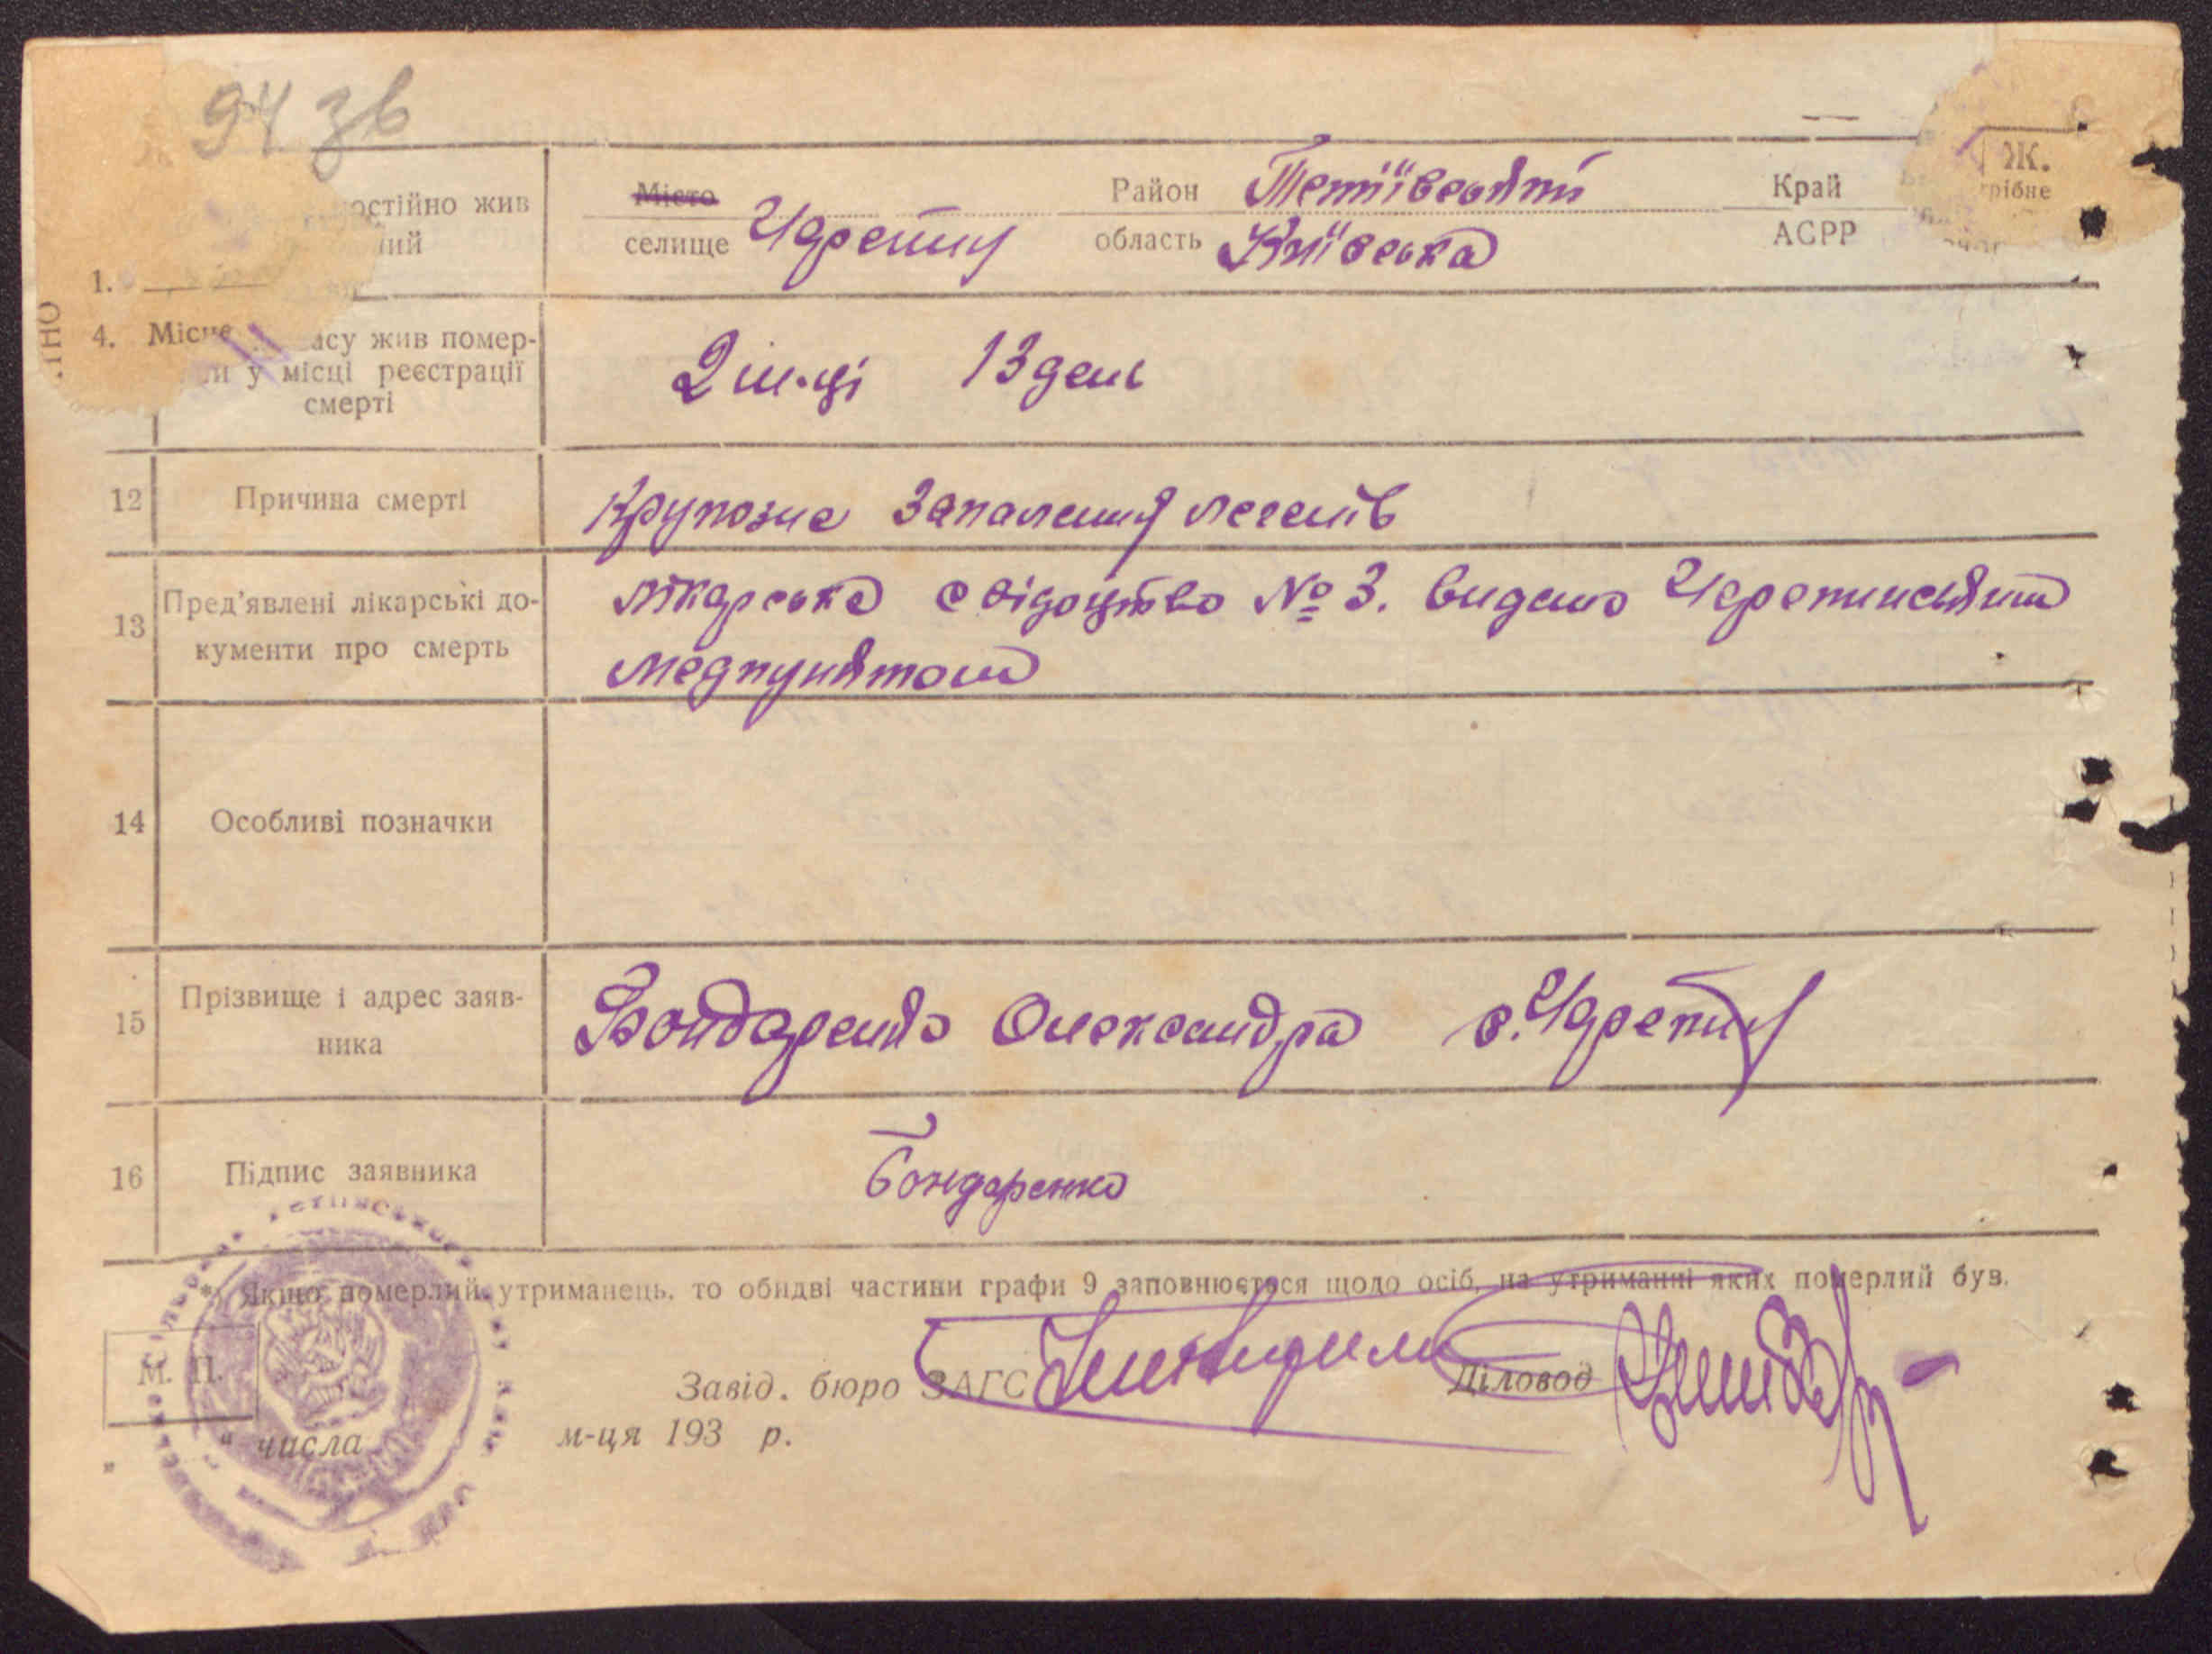 94 зв
Ж.
остійно жив
ий
Місто
селище Черепин
Район Тетіївський
область Київська
Край
АСРР
рібне
1.
4. Місце асу жив помер-
ли у місці реєстрації
смерті
2 м-ці 13 день
12 Причина смерті
Крупозне запалення легенів
13 Пред'явлені лікарські до-
кументи про смерть
лікарське свідоцтво № 3. видано Черепинським
медпунктом
14 Особливі позначки
15 Прізвище і адрес заяв-
ника
Бондаренко Олександра с. Черепин
16 Підпис заявника
Бондаренко
*) Якщо померлий утриманець, то обидві частини графи 9 заповнюється щодо осіб, на утриманні яких померлий був.
М. П.
Завід. бюро ЗАГС
Діловод
„ " числа м-ця 193 р.